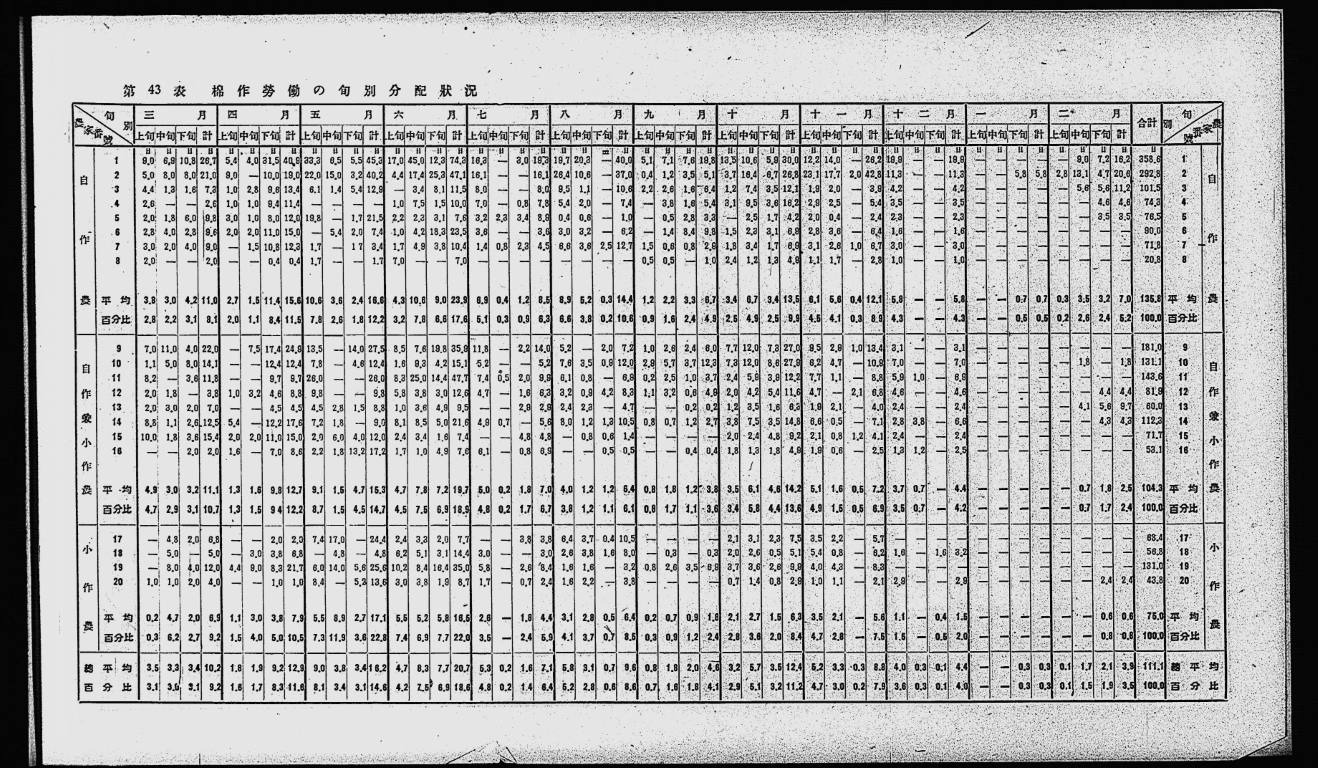 第 43 表 棉作勞働の旬別分配狀況
旬別 農家番號 三月 四月 五月 六月 七月 八月 九月 十月 十一月 十二月 一月 二月 合計 旬別 農家番號
上旬 中旬 下旬 計 上旬 中旬 下旬 計 上旬 中旬 下旬 計 上旬 中旬 下旬 計 上旬 中旬 下旬 計 上旬 中旬 下旬 計 上旬 中旬 下旬 計 上旬 中旬 下旬 計 上旬 中旬 下旬 計 上旬 中旬 下旬 計 上旬 中旬 下旬 計 上旬 中旬 下旬 計
自作農
1 9,0 6,9 10,8 26,7 5,4 4,0 31,5 40,9 33,3 6,5 5,5 45,3 17,0 45,0 12,3 74,3 16,3 — 3,0 19,3 19,7 20,3 — 40,0 5,1 7,1 7,6 19,8 13,5 10,6 5,9 30,0 12,2 14,0 — 26,2 19,9 — — 19,9 — — — — — 9,0 7,2 16,2 358,6 1
2 5,0 8,0 8,0 21,0 9,0 — 10,0 19,0 22,0 15,0 3,2 40,2 4,4 17,4 25,3 47,1 16,1 — — 16,1 26,4 10,6 — 37,0 0,4 1,2 3,5 5,1 3,7 16,4 6,7 26,8 23,1 17,7 2,0 42,8 11,3 — — 11,3 — — 5,8 5,8 2,8 13,1 4,7 20,6 292,8 2
3 4,4 1,3 1,6 7,3 1,0 2,8 9,6 13,4 6,1 1,4 5,4 12,9 — 3,4 8,1 11,5 8,0 — — 8,0 9,5 1,1 — 10,6 2,2 2,6 1,6 6,4 1,2 7,4 3,5 12,1 1,9 2,0 — 3,9 4,2 — — 4,2 — — — — — 5,6 5,6 11,2 101,5 3
4 2,6 — — 2,6 1,0 1,0 9,4 11,4 — — — — 1,0 7,5 1,5 10,0 7,0 — 0,8 7,8 5,4 2,0 — 7,4 — 3,8 1,6 5,4 3,1 9,5 3,6 16,2 2,9 2,5 — 5,4 3,5 — — 3,5 — — — — — — 4,6 4,6 74,3 4
5 2,0 1,8 6,0 9,8 3,0 1,0 8,0 12,0 19,8 — 1,7 21,5 2,2 2,3 3,1 7,6 3,2 2,3 3,4 8,9 0,4 0,6 — 1,0 — 0,5 2,8 3,3 — 2,5 1,7 4,2 2,0 0,4 — 2,4 2,3 — — 2,3 — — — — — — 3,5 3,5 76,5 5
6 2,8 4,0 2,8 9,6 2,0 2,0 11,0 15,0 — 5,4 2,0 7,4 1,0 4,2 18,3 23,5 3,6 — — 3,6 3,0 3,2 — 6,2 — 1,4 8,4 9,8 1,5 2,3 3,1 6,9 2,8 3,6 — 6,4 1,6 — — 1,6 — — — — — — — — 90,0 6
7 3,0 2,0 4,0 9,0 — 1,5 10,8 12,3 1,7 — 1,7 3,4 1,7 4,9 3,8 10,4 1,4 0,8 2,3 4,5 6,6 3,6 2,5 12,7 1,5 0,6 0,8 2,9 1,8 3,4 1,7 6,9 3,1 2,6 1,0 6,7 3,0 — — 3,0 — — — — — — — — 71,8 7
8 2,0 — — 2,0 — — 0,4 0,4 1,7 — — 1,7 7,0 — — 7,0 — — — — — — — — 0,5 0,5 — 1,0 2,4 1,2 1,3 4,9 1,1 1,7 — 2,8 1,0 — — 1,0 — — — — — — — — 20,8 8
平均 3,8 3,0 4,2 11,0 2,7 1,5 11,4 15,6 10,6 3,6 2,4 16,6 4,3 10,6 9,0 23,9 6,9 0,4 1,2 8,5 8,9 5,2 0,3 14,4 1,2 2,2 3,3 6,7 3,4 6,7 3,4 13,5 6,1 5,6 0,4 12,1 5,8 — — 5,8 — — 0,7 0,7 0,3 3,5 3,2 7,0 135,8 平均
百分比 2,8 2,2 3,1 8,1 2,0 1,1 8,4 11,5 7,8 2,6 1,8 12,2 3,2 7,8 6,6 17,6 5,1 0,3 0,9 6,3 6,6 3,8 0,2 10,6 0,9 1,6 2,4 4,9 2,5 4,9 2,5 9,9 4,5 4,1 0,3 8,9 4,3 — — 4,3 — — 0,5 0,5 0,2 2,6 2,4 5,2 100,0 百分比
自作兼小作農
9 7,0 11,0 4,0 22,0 — 7,5 17,4 24,9 13,5 — 14,0 27,5 8,5 7,6 19,8 35,9 11,8 — 2,2 14,0 5,2 — 2,0 7,2 1,0 2,6 2,4 6,0 7,7 12,0 7,3 27,0 9,5 2,9 1,0 13,4 3,1 — — 3,1 — — — — — — — — 181,0 9
10 1,1 5,0 8,0 14,1 — — 12,4 12,4 7,8 — 4,6 12,4 1,6 9,3 4,2 15,1 5,2 — — 5,2 7,6 3,5 0,9 12,0 2,9 5,7 3,7 12,3 7,3 12,0 8,6 27,9 6,2 4,7 — 10,9 7,3 — — 7,3 — — — — — 1,8 — 1,8 131,1 10
11 8,2 — 3,6 11,8 — — 9,7 9,7 26,0 — — 26,0 8,3 25,0 14,4 47,7 7,4 0,5 2,0 9,9 6,1 0,8 — 6,9 0,2 2,5 1,0 3,7 2,4 5,9 3,9 12,2 7,7 1,1 — 8,8 5,9 1,0 — 6,9 — — — — — — — — 143,6 11
12 2,0 1,8 — 3,8 1,0 3,2 4,6 8,8 9,8 — — 9,8 5,8 3,8 3,0 12,6 4,7 — 1,6 6,3 3,2 0,9 4,2 8,3 1,1 3,2 0,6 4,9 2,0 4,2 5,4 11,6 4,7 — 2,1 6,8 4,6 — — 4,6 — — — — — — 4,4 4,4 81,9 12
13 2,0 3,0 2,0 7,0 — — 4,5 4,5 4,5 2,8 1,5 8,8 1,0 3,6 4,9 9,5 — — 2,9 2,9 2,4 2,3 — 4,7 — — 0,2 0,2 1,2 3,5 1,6 6,3 1,9 2,1 — 4,0 2,4 — — 2,4 — — — — — 4,1 5,6 9,7 60,0 13
14 8,8 1,1 2,6 12,5 5,4 — 12,2 17,6 7,2 1,8 — 9,0 8,1 8,5 5,0 21,6 4,9 0,7 — 5,6 8,0 1,2 1,3 10,5 0,8 0,7 1,2 2,7 3,8 7,5 3,5 14,8 6,6 0,5 — 7,1 2,8 3,8 — 6,6 — — — — — — 4,3 4,3 112,3 14
15 10,0 1,8 3,6 15,4 2,0 2,0 11,0 15,0 2,0 6,0 4,0 12,0 2,4 3,4 1,6 7,4 — — 4,8 4,8 — 0,8 0,6 1,4 — — — — 2,0 2,4 4,8 9,2 2,1 0,8 1,2 4,1 2,4 — — 2,4 — — — — — — — — 71,7 15
16 — — 2,0 2,0 1,6 — 7,0 8,6 2,2 1,8 13,2 17,2 1,7 1,0 4,9 7,6 6,1 — 0,8 6,9 — — 0,5 0,5 — — 0,4 0,4 1,8 1,3 1,8 4,9 1,9 0,6 — 2,5 1,3 1,2 — 2,5 — — — — — — — — 53,1 16
平均 4,9 3,0 3,2 11,1 1,3 1,6 9,8 12,7 9,1 1,5 4,7 15,3 4,7 7,8 7,2 19,7 5,0 0,2 1,8 7,0 4,0 1,2 1,2 6,4 0,8 1,8 1,2 3,8 3,5 6,1 4,6 14,2 5,1 1,6 0,5 7,2 3,7 0,7 — 4,4 — — — — — 0,7 1,8 2,5 104,3 平均
百分比 4,7 2,9 3,1 10,7 1,3 1,5 9,4 12,2 8,7 1,5 4,5 14,7 4,5 7,5 6,9 18,9 4,8 0,2 1,7 6,7 3,8 1,2 1,1 6,1 0,8 1,7 1,1 3,6 3,4 5,8 4,4 13,6 4,9 1,5 0,5 6,9 3,5 0,7 — 4,2 — — — — — 0,7 1,7 2,4 100,0 百分比
小作農
17 — 4,8 2,0 6,8 — — 2,0 2,0 7,4 17,0 — 24,4 2,4 3,3 2,0 7,7 — — 3,8 3,8 6,4 3,7 0,4 10,5 — — — — 2,1 3,1 2,3 7,5 3,5 2,2 — 5,7 — — — — — — — — — — — — 68,4 17
18 — 5,0 — 5,0 — 3,0 3,8 6,8 — 4,8 — 4,8 6,2 5,1 3,1 14,4 3,0 — — 3,0 2,6 3,8 1,6 8,0 — 0,3 — 0,3 2,0 2,6 0,5 5,1 5,4 0,8 — 6,2 1,6 — 1,6 3,2 — — — — — — — — 56,8 18
19 — 8,0 4,0 12,0 4,4 9,0 8,3 21,7 6,0 14,0 5,6 25,6 10,2 8,4 16,4 35,0 5,8 — 2,6 8,4 1,6 1,6 — 3,2 0,8 2,6 3,5 6,9 3,7 3,6 2,6 9,9 4,0 4,3 — 8,3 — — — — — — — — — — — — 131,0 19
20 1,0 1,0 2,0 4,0 — — 1,0 1,0 8,4 — 5,2 13,6 3,0 3,8 1,9 8,7 1,7 — 0,7 2,4 1,6 2,2 — 3,8 — — — — 0,7 1,4 0,8 2,9 1,0 1,1 — 2,1 2,9 — — 2,9 — — — — — — 2,4 2,4 43,8 20
平均 0,2 4,7 2,0 6,9 1,1 3,0 3,8 7,9 5,5 8,9 2,7 17,1 5,5 5,2 5,8 16,5 2,6 — 1,8 4,4 3,1 2,8 0,5 6,4 0,2 0,7 0,9 1,8 2,1 2,7 1,5 6,3 3,5 2,1 — 5,6 1,1 — 0,4 1,5 — — — — — — 0,6 0,6 75,0 平均
百分比 0,3 6,2 2,7 9,2 1,5 4,0 5,0 10,5 7,3 11,9 3,6 22,8 7,4 6,9 7,7 22,0 3,5 — 2,4 5,9 4,1 3,7 0,7 8,5 0,3 0,9 1,2 2,4 2,8 3,6 2,0 8,4 4,7 2,8 — 7,5 1,5 — 0,5 2,0 — — — — — — 0,8 0,8 100,0 百分比
總平均 3,5 3,3 3,4 10,2 1,8 1,9 9,2 12,9 9,0 3,8 3,4 16,2 4,7 8,3 7,7 20,7 5,3 0,2 1,6 7,1 5,8 3,1 0,7 9,6 0,8 1,8 2,0 4,6 3,2 5,7 3,5 12,4 5,2 3,3 0,3 8,8 4,0 0,3 0,1 4,4 — — 0,3 0,3 0,1 1,7 2,1 3,9 111,1 總平均
百分比 3,1 3,0 3,1 9,2 1,6 1,7 8,3 11,6 8,1 3,4 3,1 14,6 4,2 7,5 6,9 18,6 4,8 0,2 1,4 6,4 5,2 2,8 0,6 8,6 0,7 1,6 1,8 4,1 2,9 5,1 3,2 11,2 4,7 3,0 0,2 7,9 3,6 0,3 0,1 4,0 — — 0,3 0,3 0,1 1,5 1,9 3,5 100,0 百分比